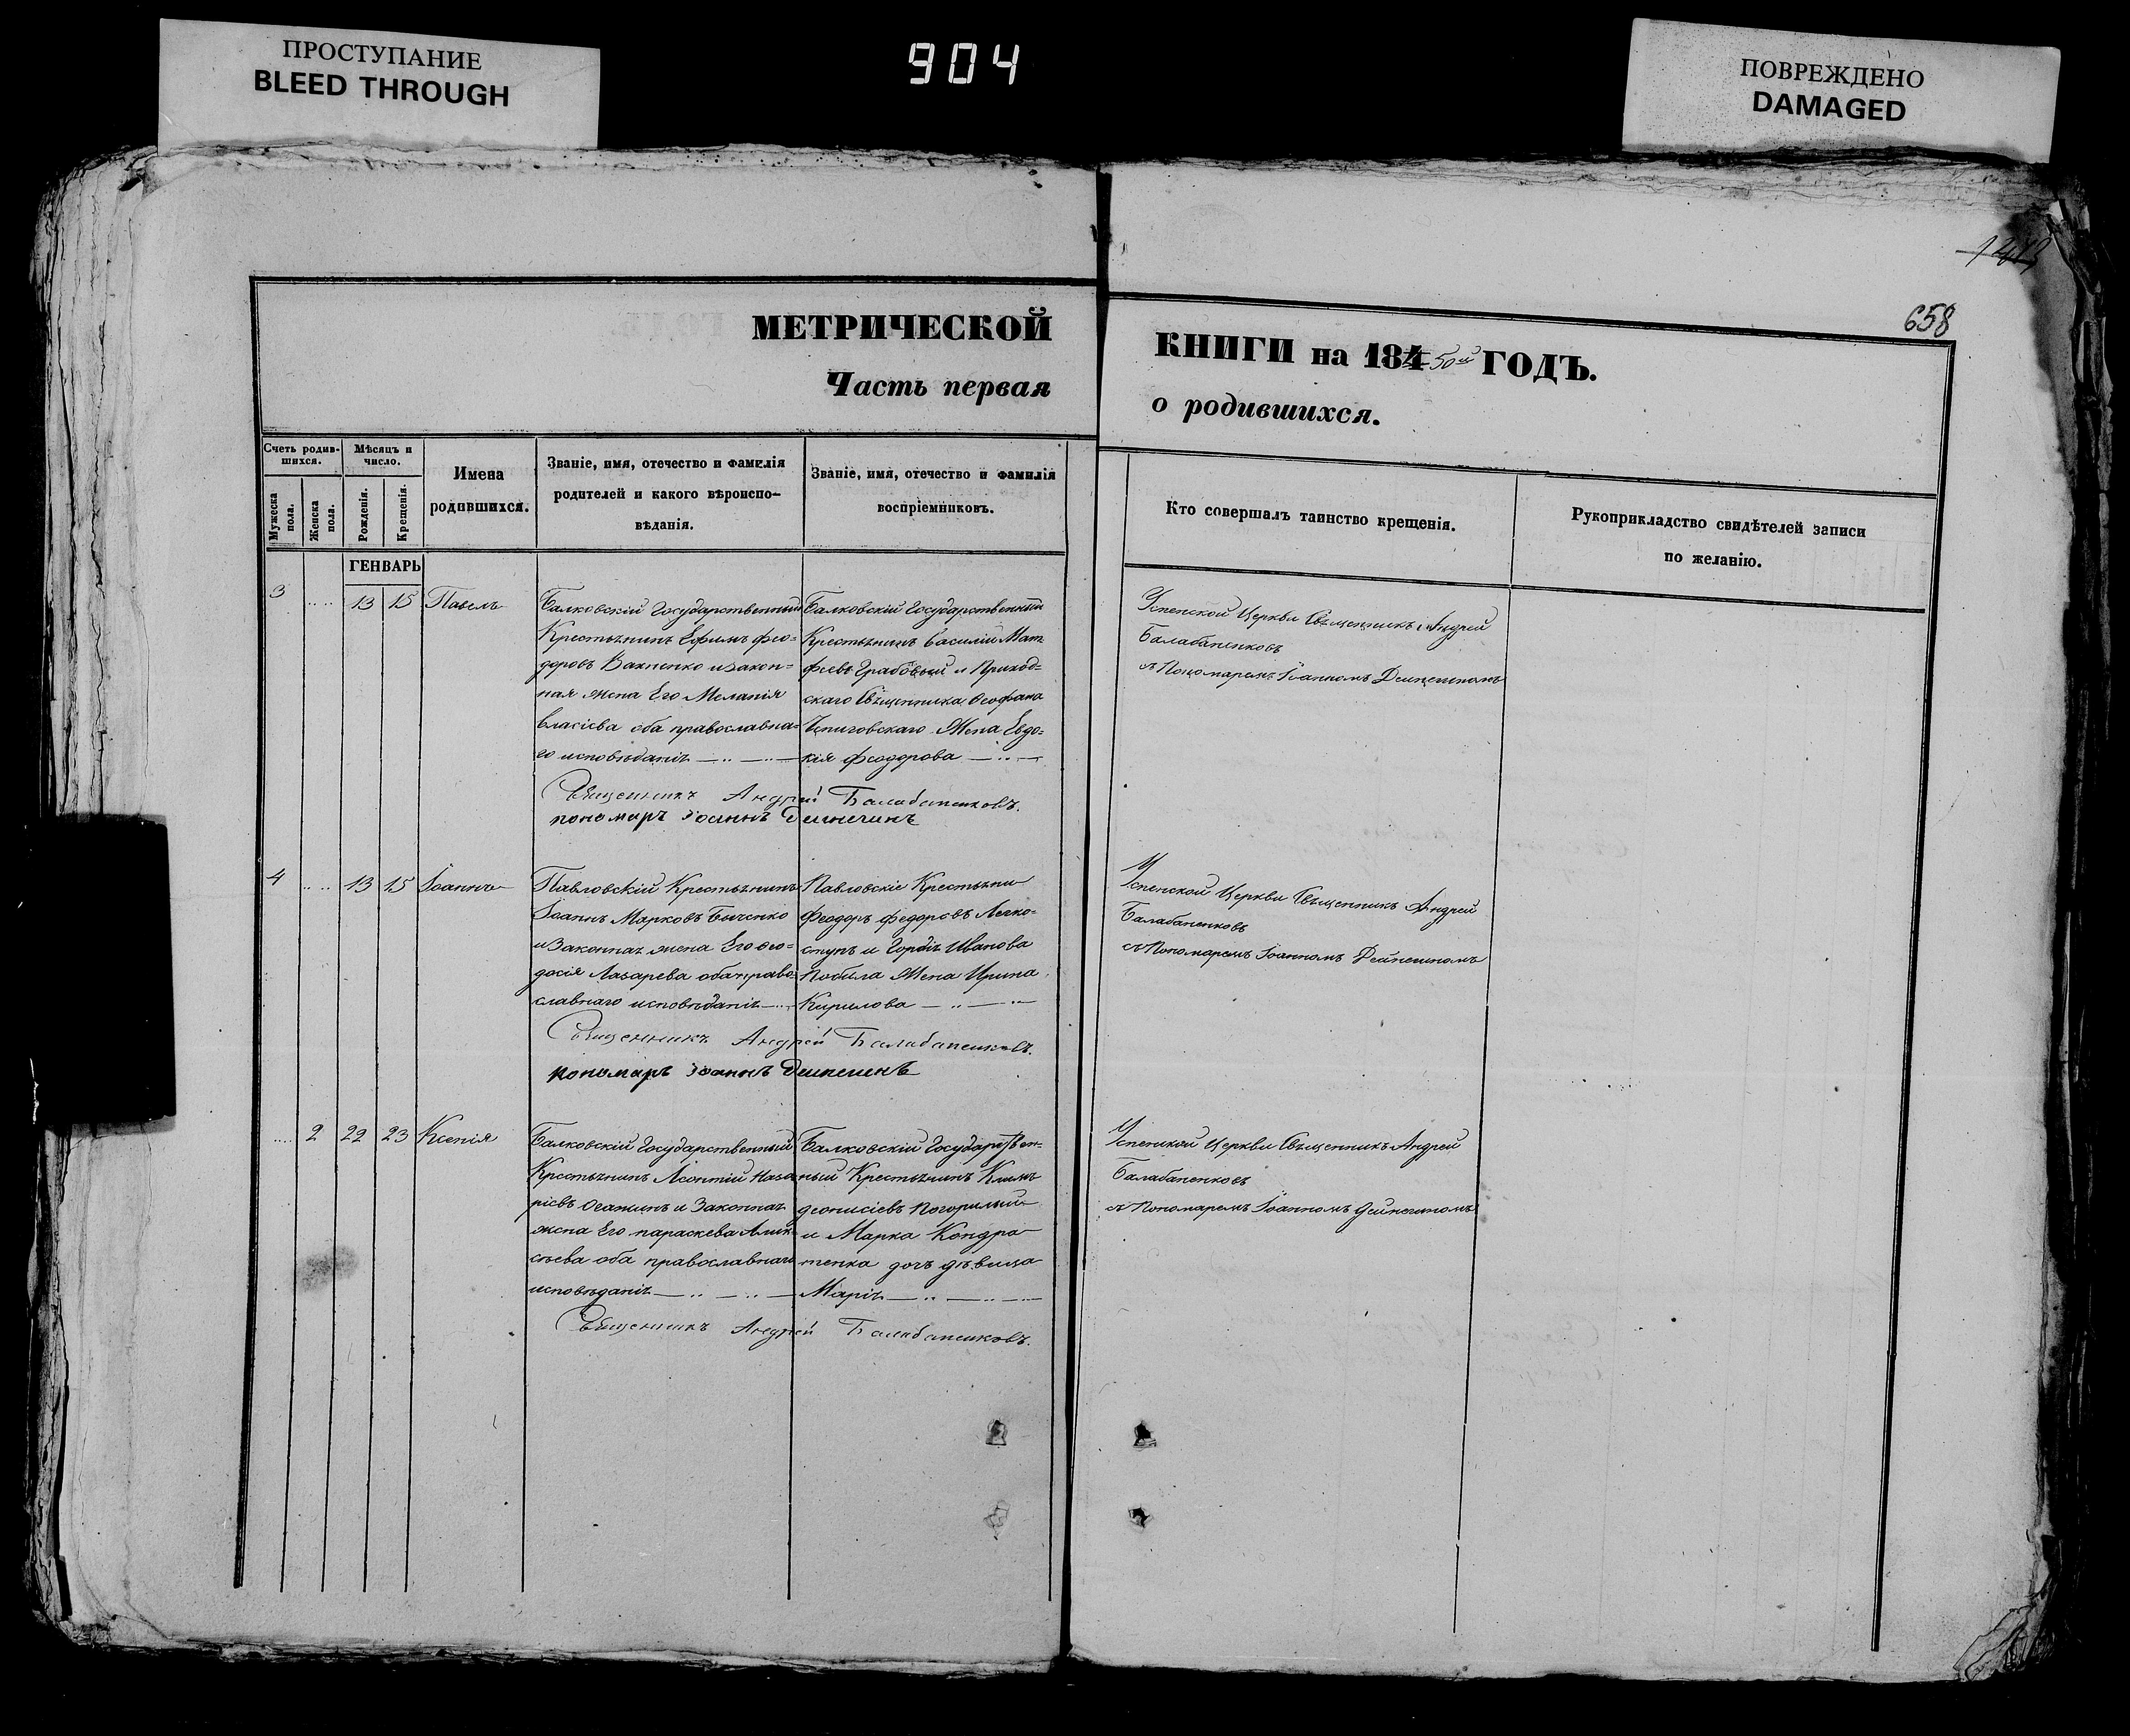 ПРОСТУПАНИЕ
BLEED THROUGH
904
ПОВРЕЖДЕНО
DAMAGED
658
МЕТРИЧЕСКОЙ
Часть первая
КНИГИ на 184 50й ГОДЪ.
о родившихся.
Счетъ родив-
шихся.
Мужеска
пола.
Женска
пола.
Мѣсяцъ и
число.
Рожденія.
Крещенія.
Имена
родившихся.
Званіе, имя, отечество и фамилія
родителей и какого вѣроиспо-
вѣданія.
Званіе, имя, отечество и фамилія
воспріемниковъ.
Кто совершалъ таинство крещенія.
Рукоприкладство свидѣтелей записи
по желанію.
ГЕНВАРЬ
3
13 15 Павелъ
Балковскій Государственный
Крестьянинъ Ефимъ Фео-
доровъ Вакненко и закон-
ная жена Его Меланія
Власіева оба православна-
го исповѣданія
Балковскій Государственный
Крестьянинъ Василій Мат
фіевъ Грабовый и Приход-
скаго Священника Феофана
Чниговскаго Жена Евдо-
кія Феодорова
Священникъ Андрей Балабаненковъ.
пономарь Іоаннъ Дейнегинъ
Успенской Церкви Священникъ Андрей
Балабаненковъ
съ Пономаремъ Іоанномъ Дейнегиномъ
4
13 15 Іоаннъ
Павловскій Крестьянинъ
Іоаннъ Марковъ Быченко
и Законная жена Его Фео-
досія Лазарева оба право
славнаго исповѣданія
Павловскіе Крестьяни
Феодоръ Федоровъ Легко-
ступъ и Гордія Иванова
Кобыла Жена Ирина
Кирилова
Священникъ Андрей Балабаненковъ.
пономарь Іоаннъ Дейнегинъ
Успенской Церкви Священникъ Андрей
Балабаненковъ
съ Пономаремъ Іоанномъ Дейнегиномъ
2 22 23 Ксенія
Балковскій Государственный
Крестьянинъ Леонтій Наза
ріевъ Оганинъ и Законная
жена Его параскева Алек
сѣева оба православнаго
исповѣданія
Балковскій Государствен-
ный Крестьянинъ Климъ
деонисіевъ Погорилый
и Марка Кондра
тенка дочь дѣвица
Марія
Священникъ Андрей Балабаненковъ.
Успенской Церкви Священникъ Андрей
Балабаненковъ
съ Пономаремъ Іоанномъ Дейнегиномъ